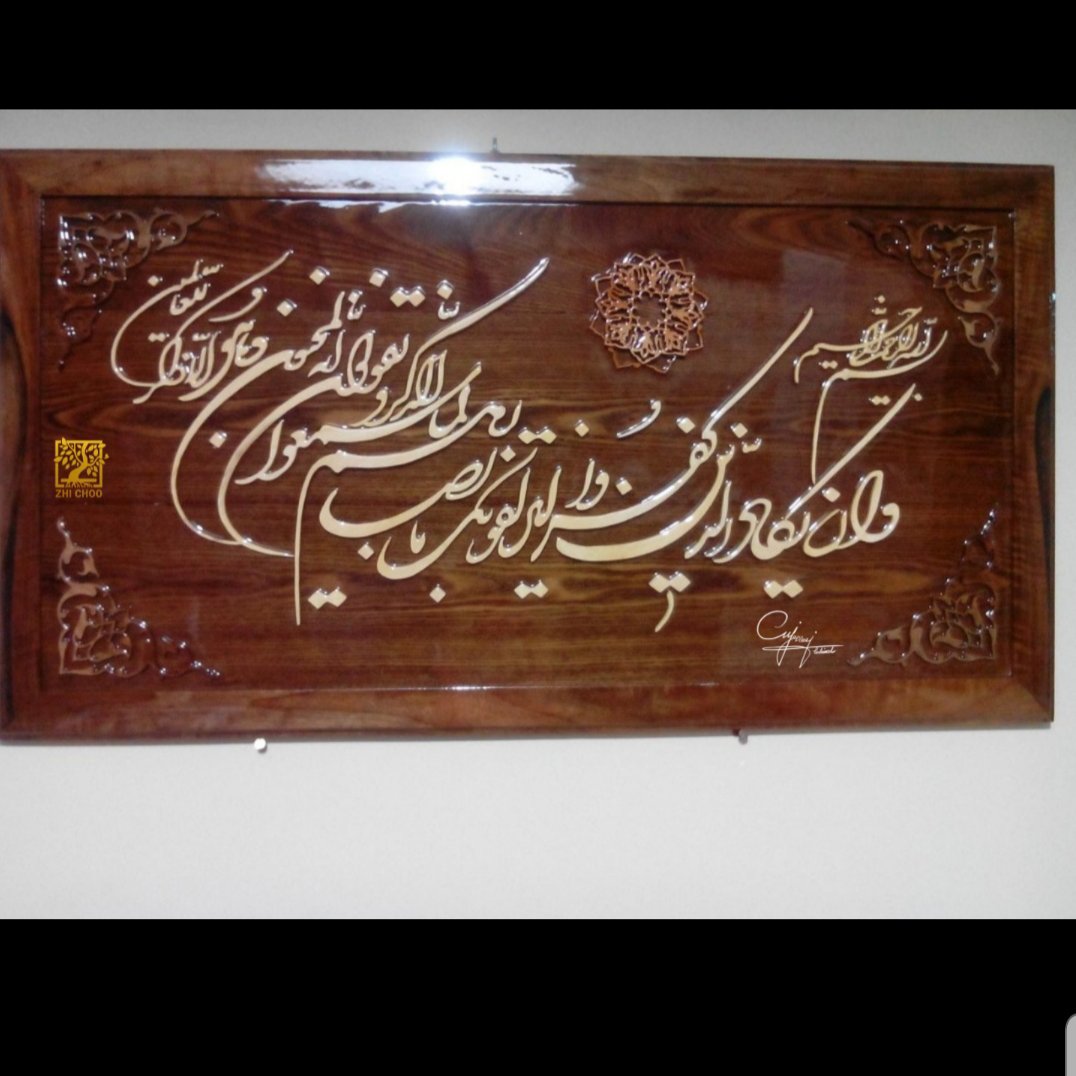 بسم الله الرحمن الرحیم
وان یکاد الذین کفروا لیزلقونک بابصارهم لما سمعوا الذکر و یقولون انه لمجنون وما هو الا ذکر للعالمین
ZHI CHOO